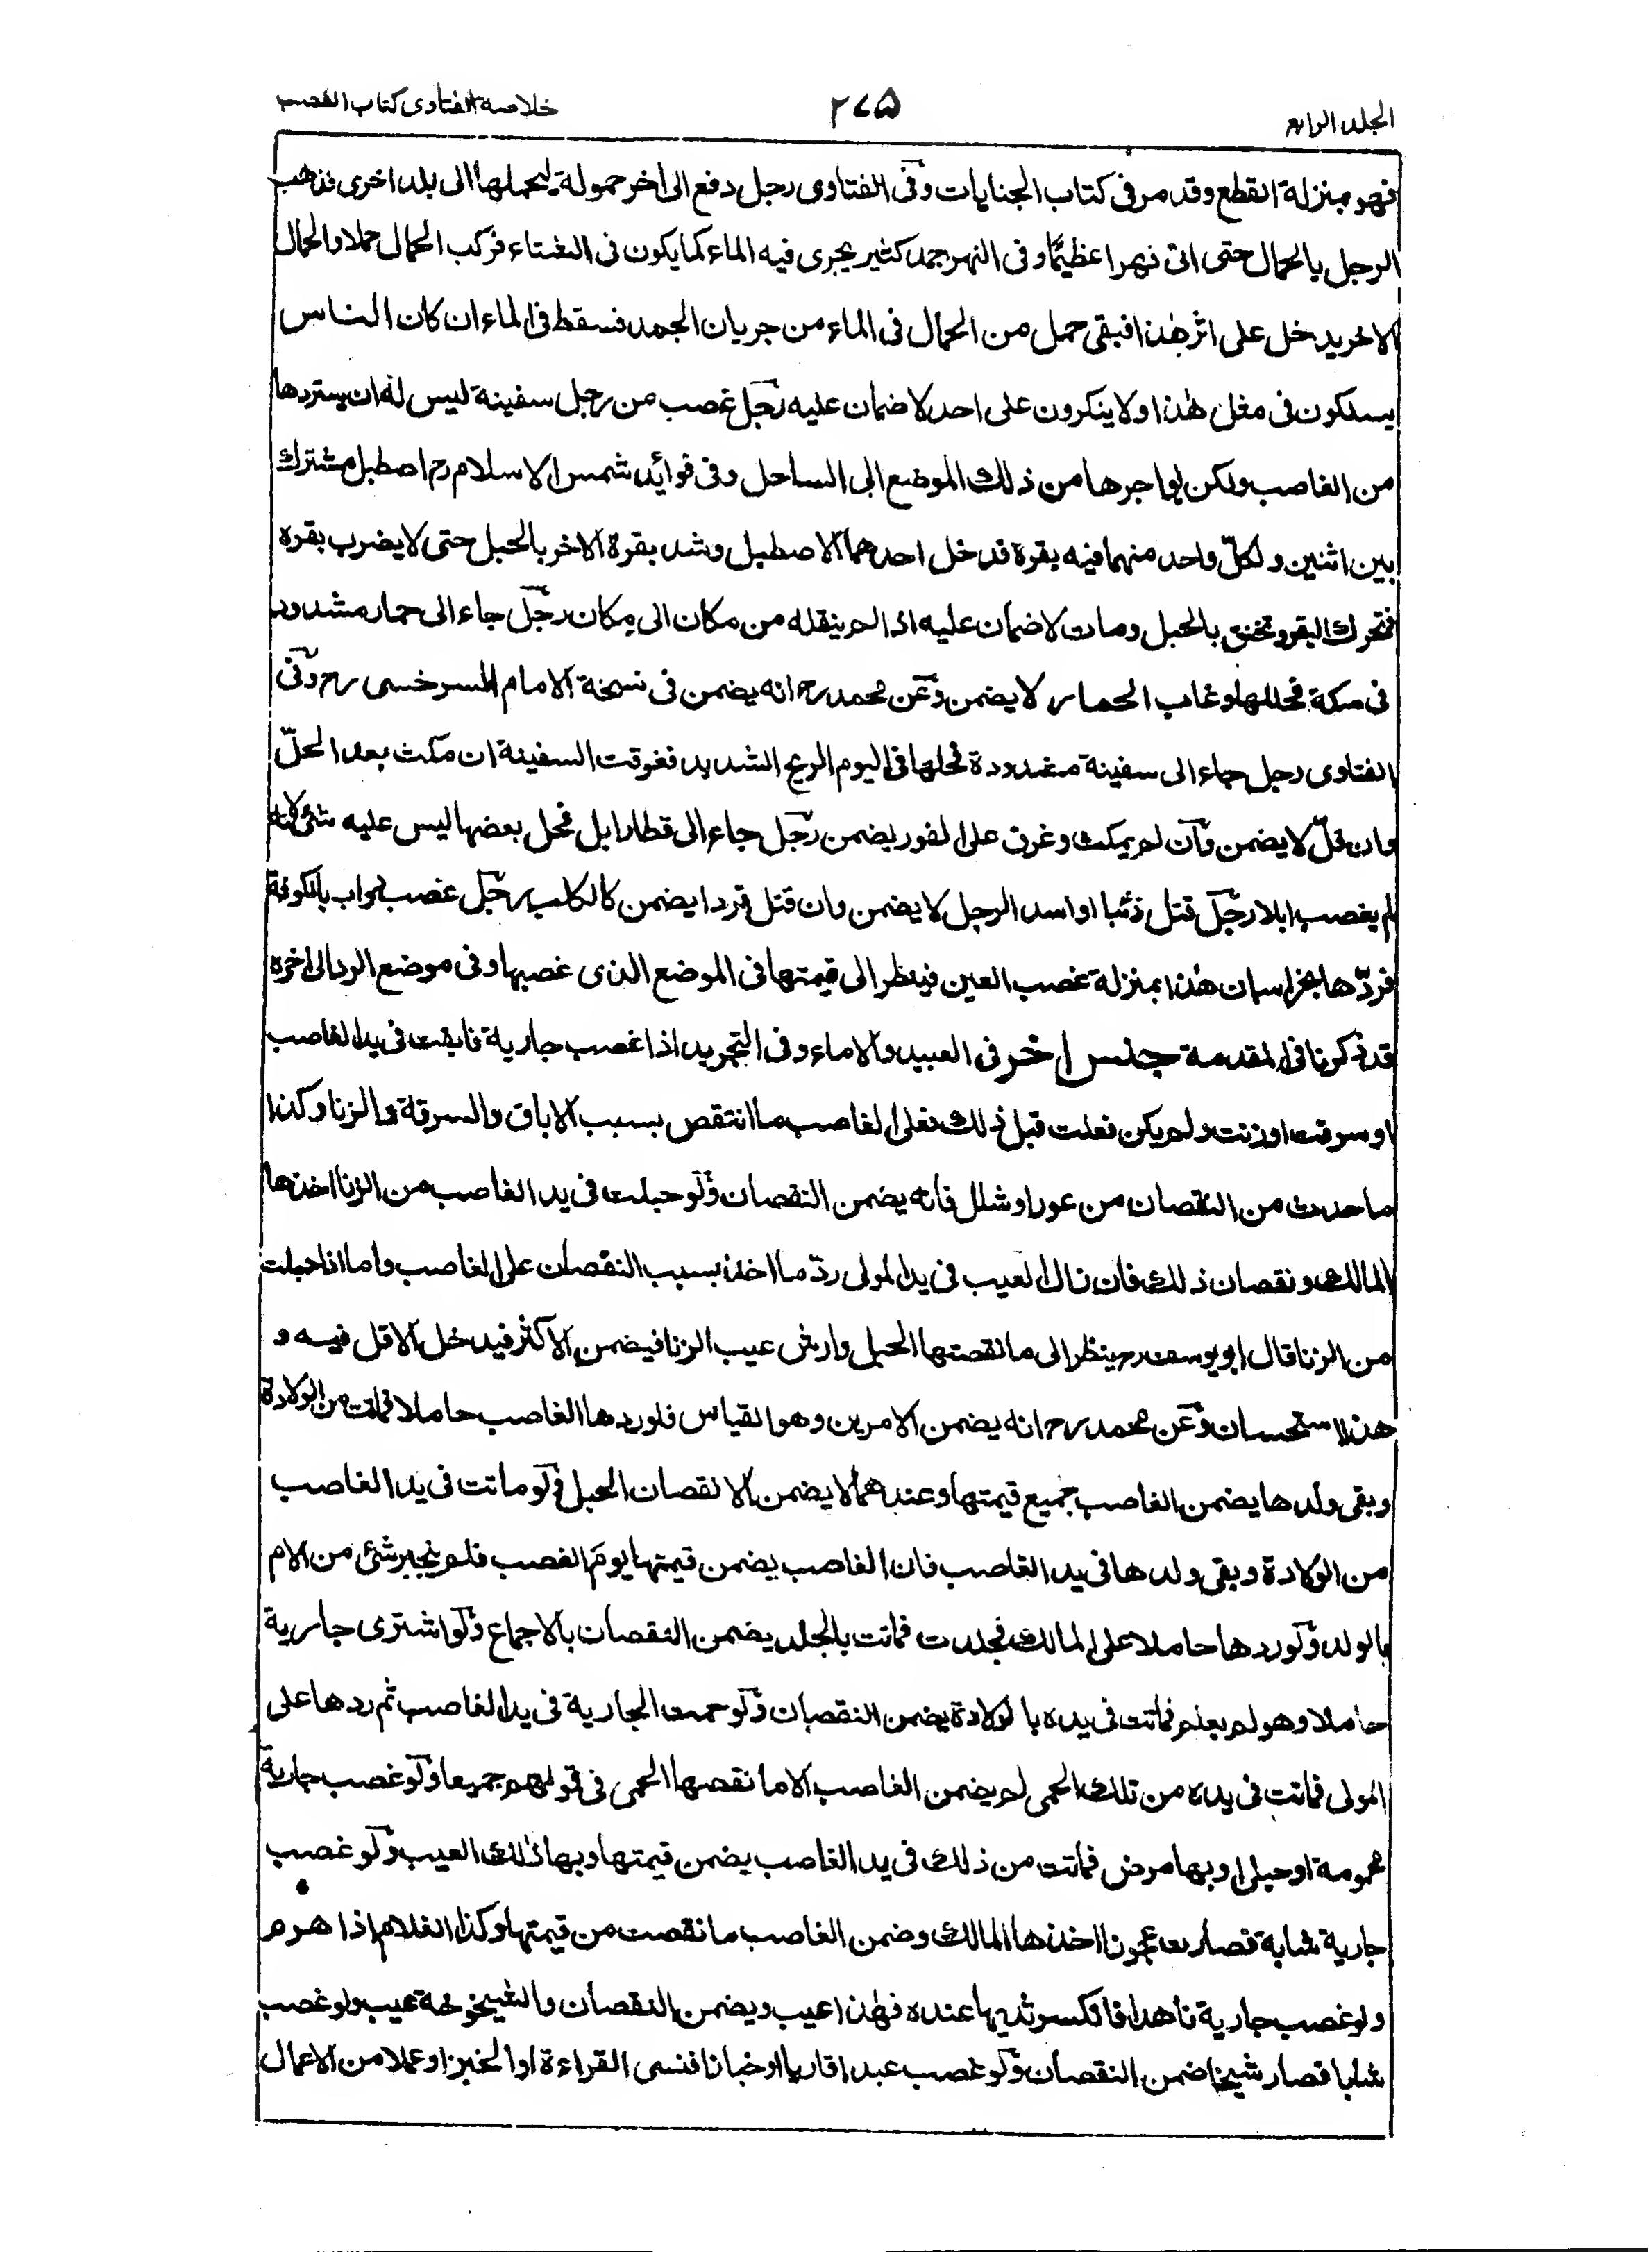 الجلد الرابع
٢٧۵
خلاصة الفتاوى كتاب الغصب
فهو بمنزلة القطع وقد مر فى كتاب الجنايات وفى الفتاوى رجل دفع الى اخر حمولة ليحملها الى بلد اخرى فذهب
الرجل بالحمال حتى اتى نهرا عظيما وفى النهر جمد كثير يجرى فيه الماء كما يكون فى الشتاء فركب الحمال حملا والحمال
الاخر يدخل على اثر هذا فبقى حمل من الحمال فى الماء من جريان الجمد فسقط فى الماء ان كان الناس
يسلكون فى مثل هذا ولا ينكرون على احد لا ضمان عليه رجل غصب من رجل سفينة ليس له ان يستردها
من الغاصب ولكن يواجرها من ذلك الموضع الى الساحل وفى فوائد شمس الاسلام رح اصطبل مشترك
بين اثنين ولكل واحد منهما فيه بقرة فدخل احدهما الاصطبل وشد بقرة الاخر بالحبل حتى لا يضرب بقره
فتحرك البقر وتخنق بالحبل ومات لا ضمان عليه اذا لم ينقله من مكان الى مكان رجل جاء الى حمار مشدود
فى سكة فحللها وغاب الحمار لا يضمن وعن محمد رح انه يضمن فى نسخة الامام السرخسى رح وفى
الفتاوى رجل جاء الى سفينة مشدودة فحلها فى اليوم الريح الشديد فغرقت السفينة ان مكث بعد الحلّ
وان قلّ لا يضمن وان لم يمكث وغرق على الفور يضمن رجل جاء الى قطار ابل فحل بعضها ليس عليه شئ لانه
لم يغصب ابلا رجل قتل ذئبا او اسد الرجل لا يضمن وان قتل قردا يضمن كالكلب رجل غصب دواب بالكوفة
فردّها بخراسان هذا بمنزلة غصب العين فينظر الى قيمتها فى الموضع الذى غصبها وفى موضع الرد الى اخره
قد ذكرنا فى المقدمة جنس اخر فى العبيد والاماء وفى التجريد اذا غصب جارية فابقت فى يد الغاصب
او سرقت او زنت ولم يكن فعلت قبل ذلك فعلى الغاصب ما انتقص بسبب الاباق والسرقة والزنا وكذا
ما حدث من النقصان من عور او شلل فانه يضمن النقصان ولو حبلت فى يد الغاصب من الزنا اخذها
المالك ونقصان ذلك فان زال العيب فى يد المولى ردّ ما اخذ بسبب النقصان على الغاصب واما اذا حبلت
من الزنا قال ابو يوسف رح ينظر الى ما نقصتها الحبل وارش عيب الزنا فيضمن الاكثر فيدخل الاقل فيه و
هذا استحسان وعن محمد رح انه يضمن الامرين وهو القياس فلو ردها الغاصب حاملا فماتت من الولادة
وبقى ولدها يضمن الغاصب جميع قيمتها وعندهما لا يضمن الا نقصان الحبل ولو ماتت فى يد الغاصب
من الولادة وبقى ولدها فى يد الغاصب فان الغاصب يضمن قيمتها يوم الغصب فلم ينجبر شئ من الام
بالولد ولو ردها حاملا على المالك فجلدت فماتت بالجلد يضمن النقصان بالاجماع ولو اشترى جارية
حاملا وهو لم يعلم فماتت فى يده بالولادة يضمن النقصان ولو حمت الجارية فى يد الغاصب ثم ردها على
المولى فماتت فى يده من تلك الحمى لم يضمن الغاصب الا ما نقصها الحمى فى قولهم جميعا ولو غصب جارية
محمومة او حبلى او بها مرض فماتت من ذلك فى يد الغاصب يضمن قيمتها وبها ذلك العيب ولو غصب
جارية شابة فصارت عجوزا اخذها المالك وضمن الغاصب ما نقصت من قيمتها وكذا الغلام اذا هرم
ولو غصب جارية ناهدا فانكسر ثديها عنده فهذا عيب ويضمن النقصان والشيخوخة عيب ولو غصب
شابا فصار شيخا ضمن النقصان ولو غصب عبدا قاريا او خبازا فنسى القراءة او الخبز او عملا من الاعمال